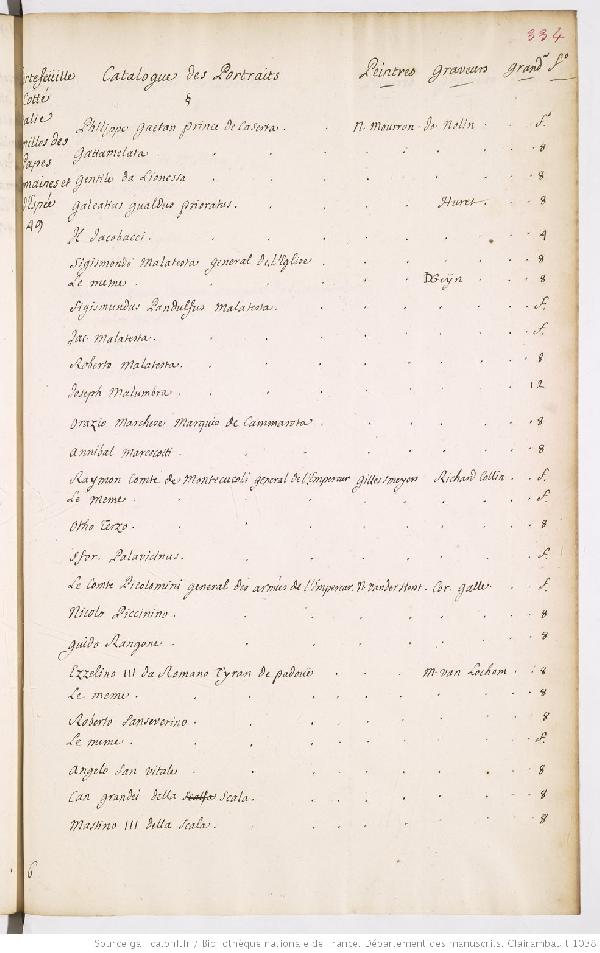 334
Catalogue des Portraits Peintres graveurs grandr fo
Cotté
Philippe gaetan prince de Caserta. N. Mourron de Nolin f.
milles des
Gattamelata 8
Papes
Gentile da Lionessa 8
maines et
Galeatius gualduo prioratus. Huret. 8
49
H Jacobacci. 4
Sigismondi Malatesta general de l'Eglise 8
Le meme. 8
Sigismundus Pandulfus Malatesta. f.
Jac. Malatesta. f.
Roberto Malatesta. 8
Joseph Malumbra 12
Orazio Marchese Marquis de Cammarota 8
Annibal Marescotti 8
Raymon Comte de Montecucoli general de l'Empereur Gilles meyers Richard Collin. f.
Le meme. f.
Otho Terzo. 8
Sfor. Palavicinus. f.
Le Comte Picolomini general des armées de l'Empereur. N. Vander Hont. Cor. galle f.
Nicolo Piccinino. 8
guido Rangone. 8
Ezzelino III da Romano Tyran de padoüe M. van Lochom. 8
Le meme. 8
Roberto Sanseverino. 8
Le meme. f.
Angelo San vitale 8
Can grandei della Scala. 8
Mastino III della Scala. 8
6
Source gallica.bnf.fr / Bibliothèque nationale de France. Département des manuscrits. Clairambault 1038